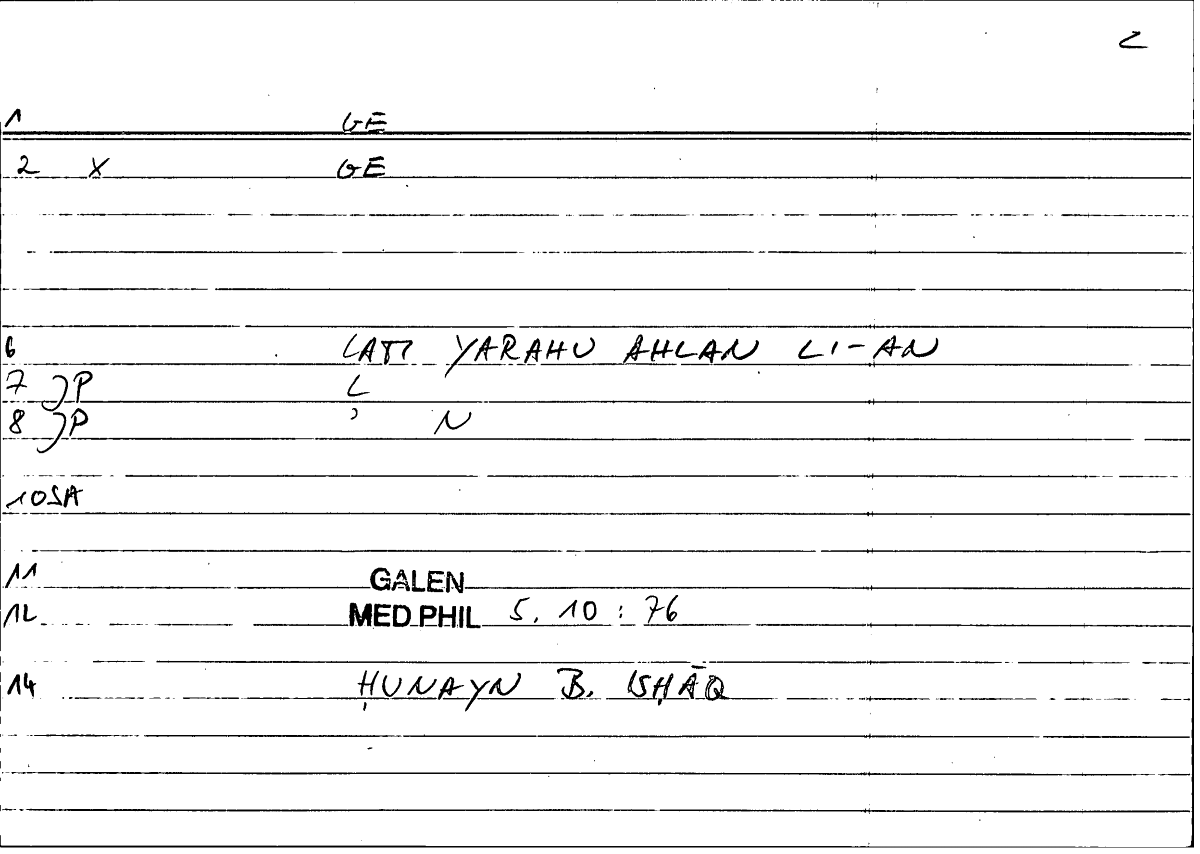 2
1 GE
2 X GE
6 LAM YARAHU AHLAN LI-AN
7 JP L
8 JP ' N
10SA
11 GALEN
12 MED PHIL 5. 10 : 76
14 ḤUNAYN B. ISḤĀQ